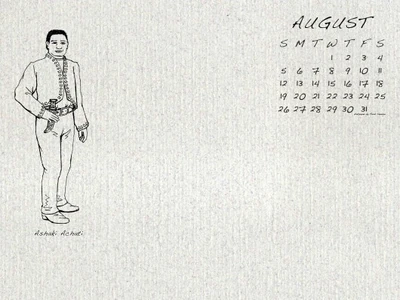 AUGUST
S M T W T F S
1 2 3 4
5 6 7 8 9 10 11
12 13 14 15 16 17 18
19 20 21 22 23 24 25
26 27 28 29 30 31